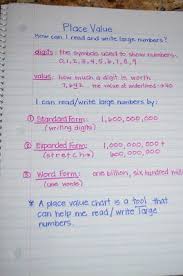 Place Value
How can I read and write large numbers?
digits: the symbols used to show numbers-
0,1,2,3,4,5,6,7,8,9
value: how much a digit is worth
7,642 the value of underlined → 40
I can read/write large numbers by:
① Standard Form: 1,600,000,000
(writing digits)
② Expanded Form: 1,000,000,000 +
(stretch→) 600,000,000
③ Word Form: one billion, six hundred mill
(use words)
* A place value chart is a tool that
can help me read/write large
numbers.